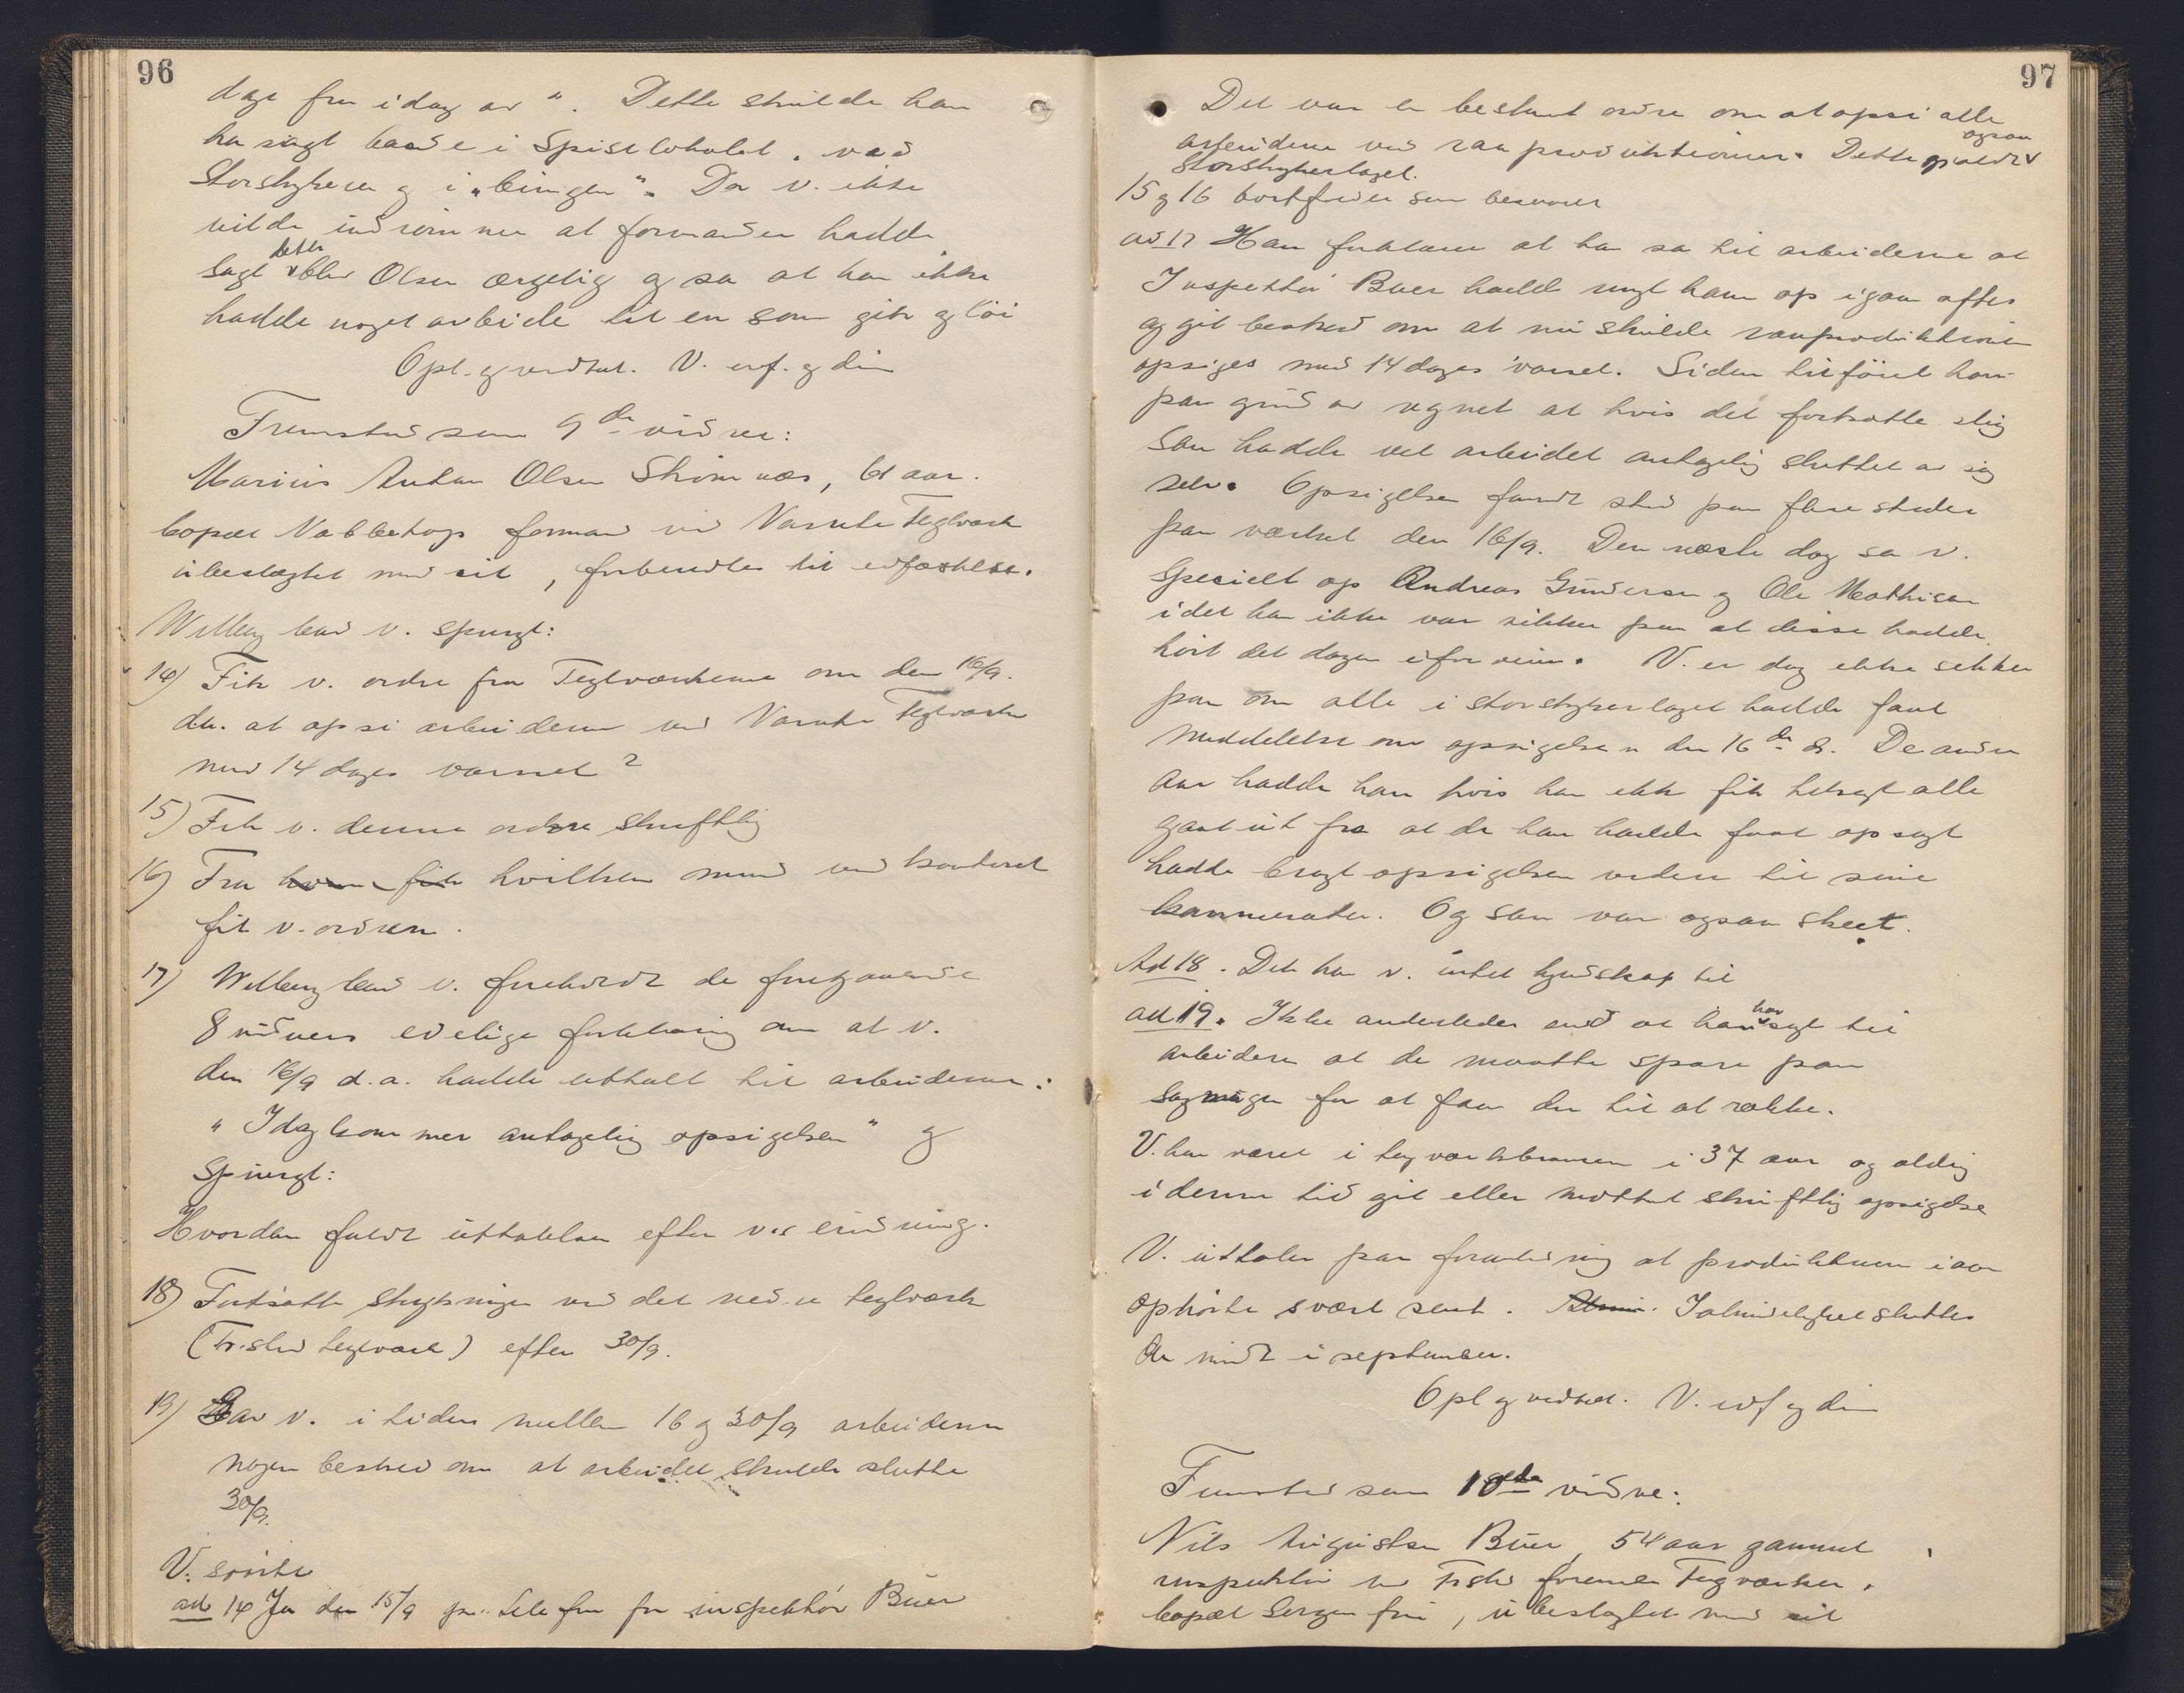 96
dage fra idag av". Dette skulde han
ha sagt baade i Spiselokalet, ved
Storstrykeren og i "bingen". Da v. ikke
vilde indrømme at formanden hadde
dette
sagt blev Olsen ærgelig og sa at han ikke
hadde noget arbeide til en som gik og løi
Opl. og vedtat. V. erf. og dim
Fremstod som 9de vidne:
Marius Anton Olsen Skomnæs, 61 aar.
bopæl Nabbetorp formand ved Narnte Teglverk
ubeslægtet med cit, forberedtes til edfæstelse.
Wellberg lod v. spurgt:
14) Fik v. ordre fra Teglværkerne om den 16/9.
d.a. at opsi arbeiderne ved Narnte Teglværk
med 14 dages varsel?
15) Fik v. denne ordre skriftlig
16) Fra hvem fik hvilken mand ved kontoret
fik v. ordren.
17) Wellberg lod v. foreholdt de foregaaende
8 vidners edelige forklaring om at v.
den 16/9 d.a. hadde uttalt til arbeiderne:
"Idag kommer antagelig opsigelsen" og
Spurgt:
Hvordan faldt uttalelsen efter v.s erindring.
18) Fortsatte strykningen ved det nedre teglværk
(Fr.stad teglværk) efter 30/9.
19) Gav v. i tiden mellem 16 og 30/9 arbeiderne
nogen besked om at arbeidet skulde slutte
30/9.
V. svarte
ad 14 Ja den 15/9 pr. telefon fra inspektør Buer
97
Det var en bestemt ordre om at opsi alle
arbeiderne ved raaproduktionen. Dette gjaldt
ogsaa
Storstrykerlaget.
15 og 16 bortfalder som besvaret
ad 17 Han forklarer at han sa til arbeiderne at
Inspektør Buer hadde ringt ham op igaar aftes
og git besked om at nu skulde raaproduktionen
opsiges med 14 dages varsel. Siden tilføiet han
paa grund av regnet at hvis det fortsatte slig
saa hadde vel arbeidet antagelig sluttet av sig
selv. Opsigelsen fandt sted paa flere steder
paa værket den 16/9. Den næste dag sa v.
specielt op Andreas Gundersen og Ole Mathisen
idet han ikke var sikker paa at disse hadde
hørt det dagen iforveien. V. er dog ikke sikker
paa om alle i storstrykerlaget hadde faat
meddelelse om opsigelsen den 16de ds. De andre
aar hadde han hvis han ikke fik tilsagt alle
gaat ut fra at de han hadde faat opsagt
hadde bragt opsigelsen videre til sine
kammerater. Og saa var ogsaa skeet.
Ad 18. Det har v. intet kjendskap til
ad 19. Ikke anderledes end at han har sagt til
arbeidern at de maatte spare paa
sagmugen for at faa den til at række.
V. har været i teglværksbransen i 37 aar og aldrig
i denne tid git eller mottat skriftlig opsigelse
V. uttaler paa foranledning at produktionen iaar
ophørte svært sent. Almin. I almindelighet sluttes
der midt i september.
Opl og vedtat. V. edf og dim
Fremstod som 10de vidne:
Nils Augustsen Buer, 54 aar gammel
inspektør ved Frstad forenede Teglværker,
bopæl Borgen frie, ubeslægtet med cit